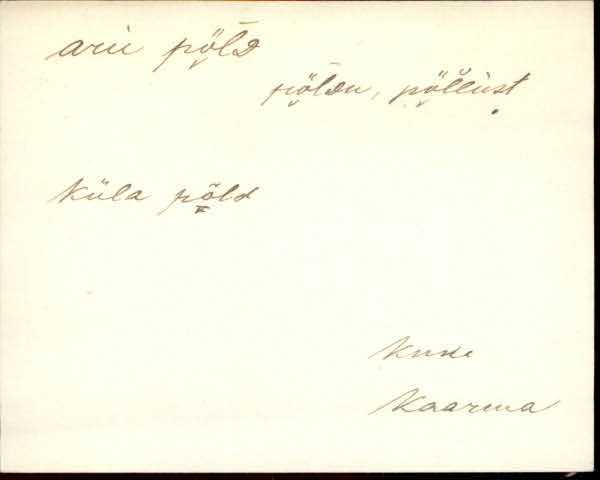 aru põld
põldu, põllust
küla põld
Kaarma